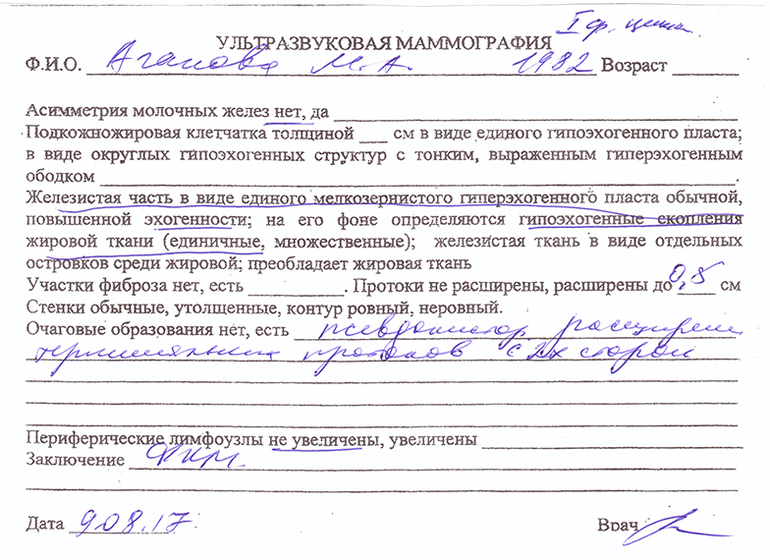 I ф. цикла
УЛЬТРАЗВУКОВАЯ МАММОГРАФИЯ
Ф.И.О. Агапова М.А. 1982 Возраст ______
Асимметрия молочных желез нет, да
Подкожножировая клетчатка толщиной ___ см в виде единого гипоэхогенного пласта;
в виде округлых гипоэхогенных структур с тонким, выраженным гиперэхогенным
ободком ______.
Железистая часть в виде единого мелкозернистого гиперэхогенного пласта обычной,
повышенной эхогенности; на его фоне определяются гипоэхогенные скопления
жировой ткани (единичные, множественные); железистая ткань в виде отдельных
островков среди жировой; преобладает жировая ткань
Участки фиброза нет, есть ______. Протоки не расширены, расширены до 0,5 см
Стенки обычные, утолщенные, контур ровный, неровный.
Очаговые образования нет, есть расширен
протоков с 2х сторон
Периферические лимфоузлы не увеличены, увеличены
Заключение ФКМ.
Дата 9.08.17 Врач